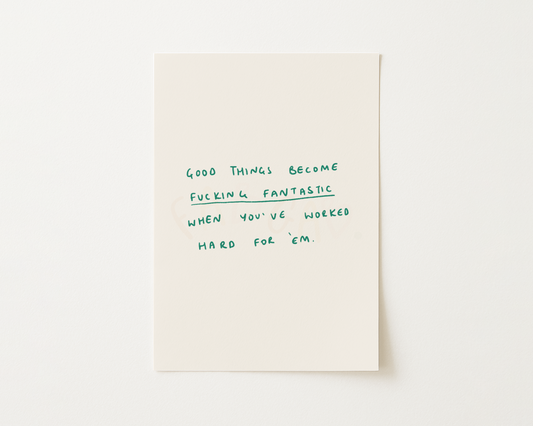 GOOD THINGS BECOME
FUCKING FANTASTIC
WHEN YOU'VE WORKED
HARD FOR 'EM.